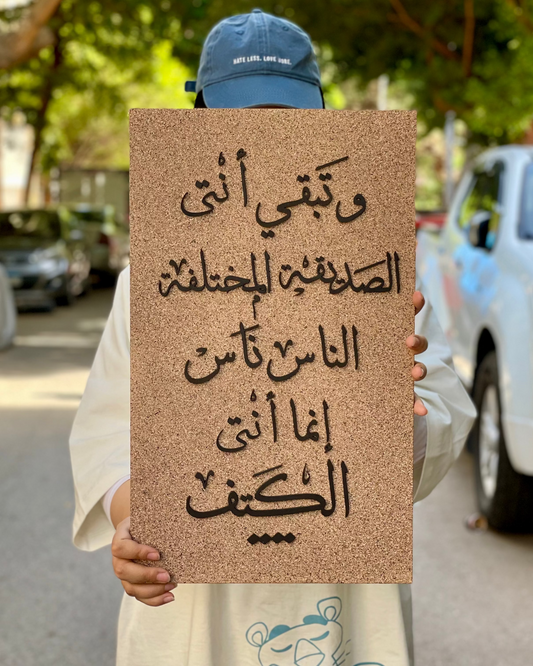 HATE LESS. LOVE MORE.
وتَبقي أنتى
الصَديقة المختلفة
الناس نَاس
إنما أنتى
الكَتِف